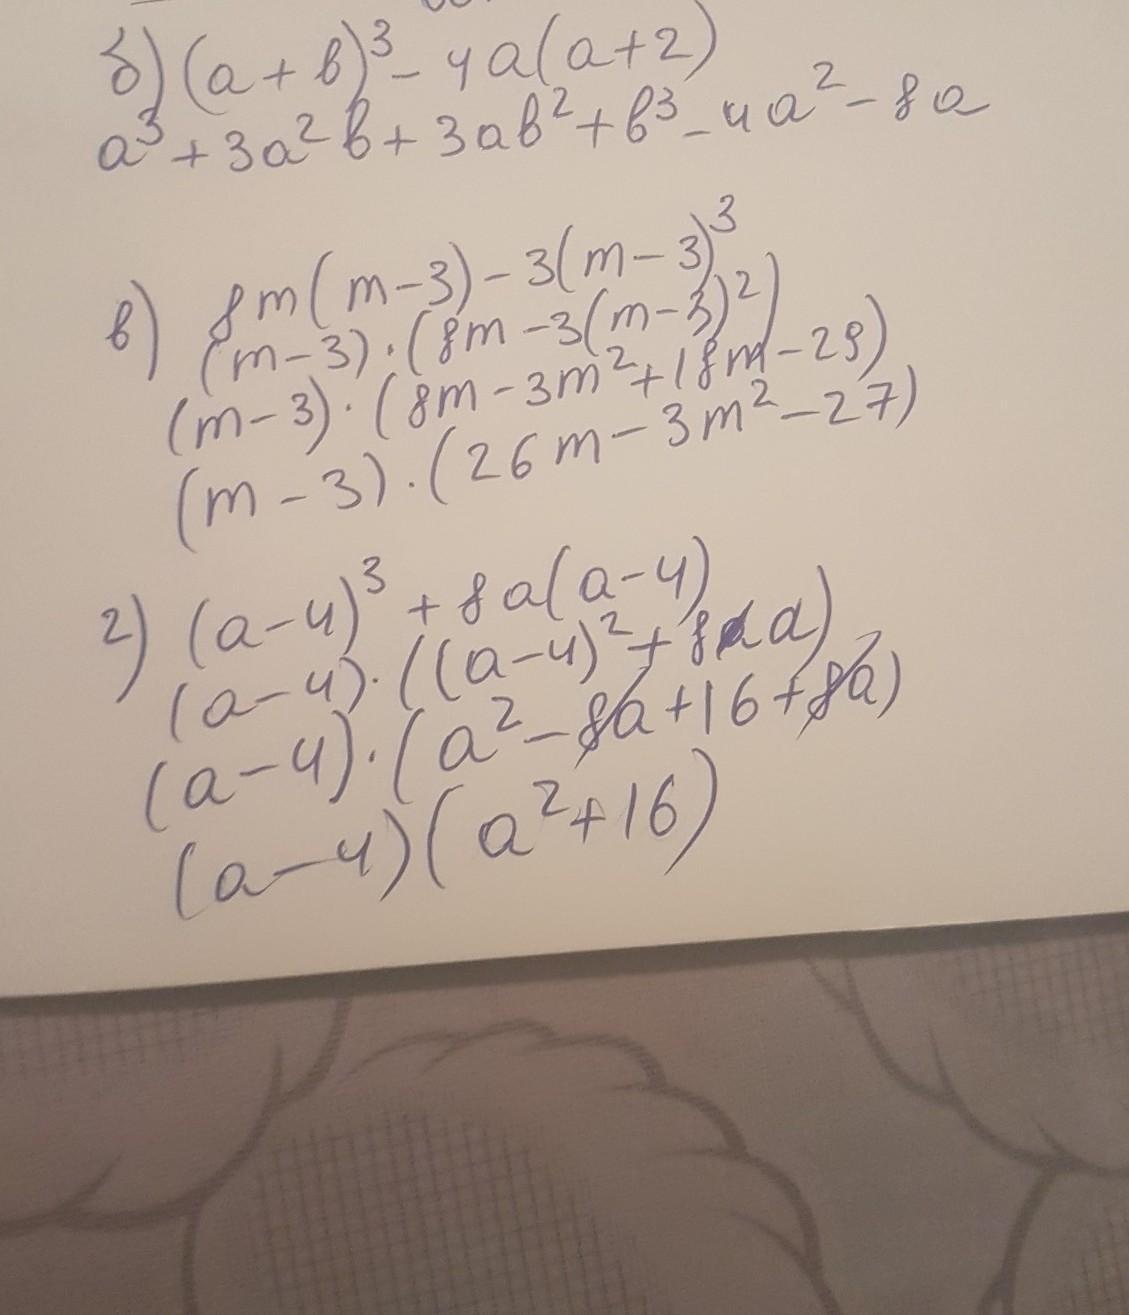 б) (a+b)³-4a(a+2)
a³+3a²b+3ab²+b³-4a²-8a
в) 8m(m-3)-3(m-3)³
(m-3)·(8m-3(m-3)²)
(m-3)·(8m-3m²+18m-29)
(m-3)·(26m-3m²-27)
г) (a-4)³+8a(a-4)
(a-4)·((a-4)²+8a)
(a-4)·(a²-8a+16+8a)
(a-4)(a²+16)